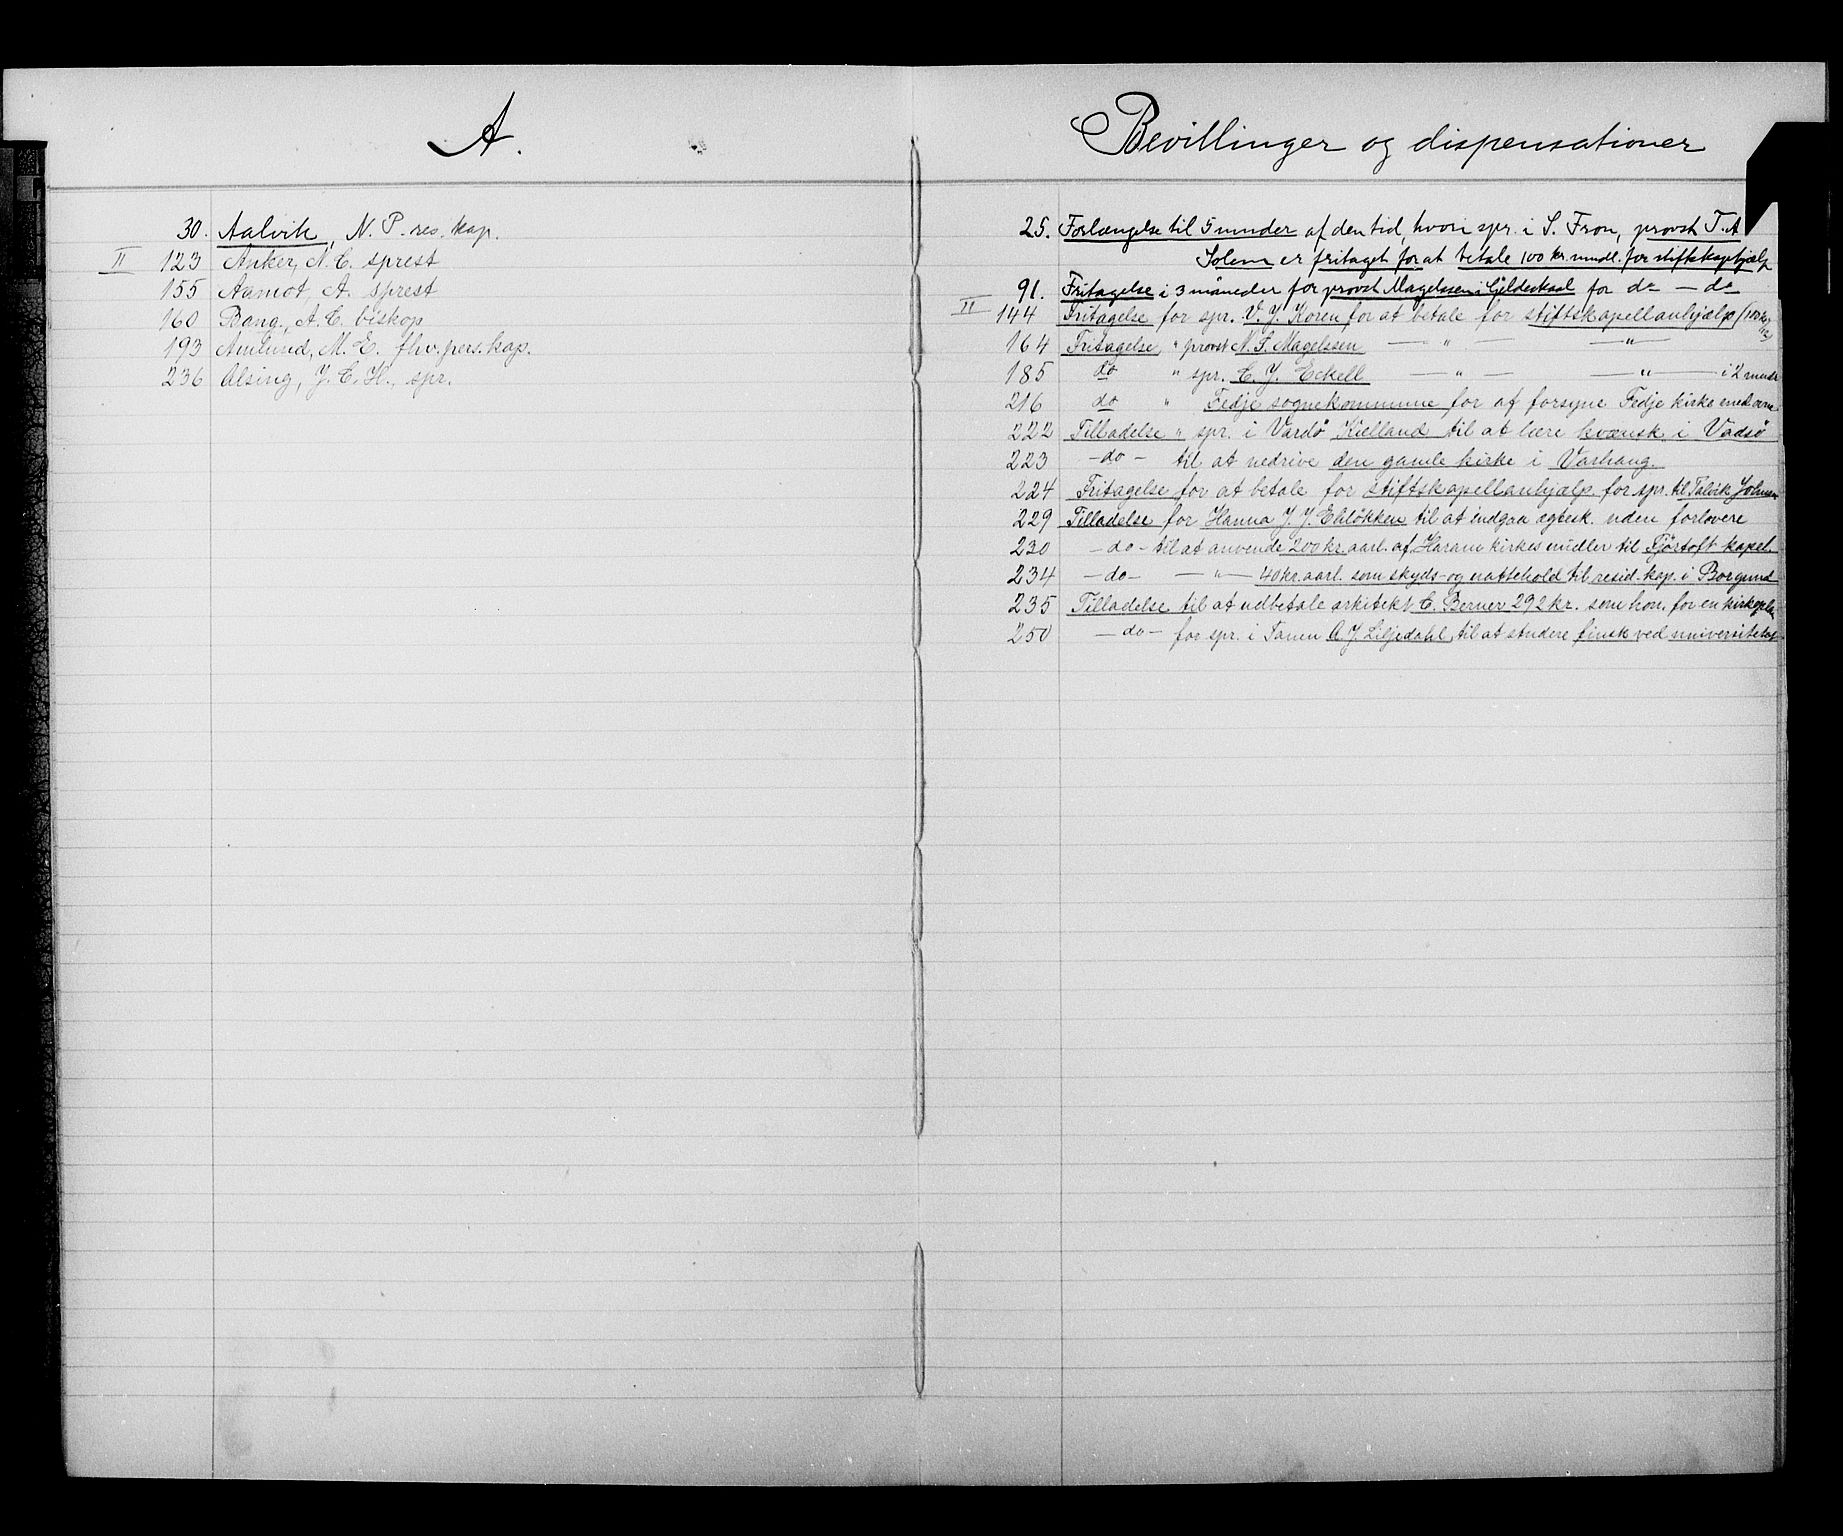 A.
30. Aalvik, N. P. res. kap.
II 123 Anker, N. C. sprest
155 Aamot, A. sprest
160 Bang, A. C. biskop
193 Amlund, M. E. fhv. pers. kap.
236 Alsing, J. C. H., spr.
Bevillinger og dispensationer
25. Forlængelse til 5 mnder af den tid, hvori spr. i S. Fron, provst T. A
Solem er fritaget for at betale 100 kr. mndl. for stiftskaphjælp
91. Fritagelse i 3 måneder for provst Magelssen i Gildeskaal for do — do
II 144 Fritagelse for spr. V. J. Koren for at betale for stiftskapellanhjælp (100 kr.
164 Fritagelse " provst N. S. Magelssen — " — — " —
185 do " spr. C. J. Eckell — " — — " — i 2 mndr
216 do " Fedje sognekommune for af forsyne Fedje kirke med ovne
222 Tilladelse " spr. i Vardö Kielland til at lære kvænsk i Vadsö
223 — do — til at nedrive den gamle kirke i Varhaug.
224 Fritagelse for at betale for stiftskapellanhjælp for spr. til Talvik Johnsen
229 Tilladelse for Hanna J. J. Ekløkken til at indgaa ægtesk. uden forlovere
230 — do — til at anvende 200 kr. aarl. af Haram kirkes midler til Fjørtoft kapel.
234 — do — — " — 40 kr. aarl. som skyds- og nattehold til resid. kap. i Borgund
235 Tilladelse til at udbetale arkitekt C. Berner 292 kr. som hon. for en kirkeplan
250 — do — for spr. i Tanen A J Liljedahl, til at studere finsk ved universitetet